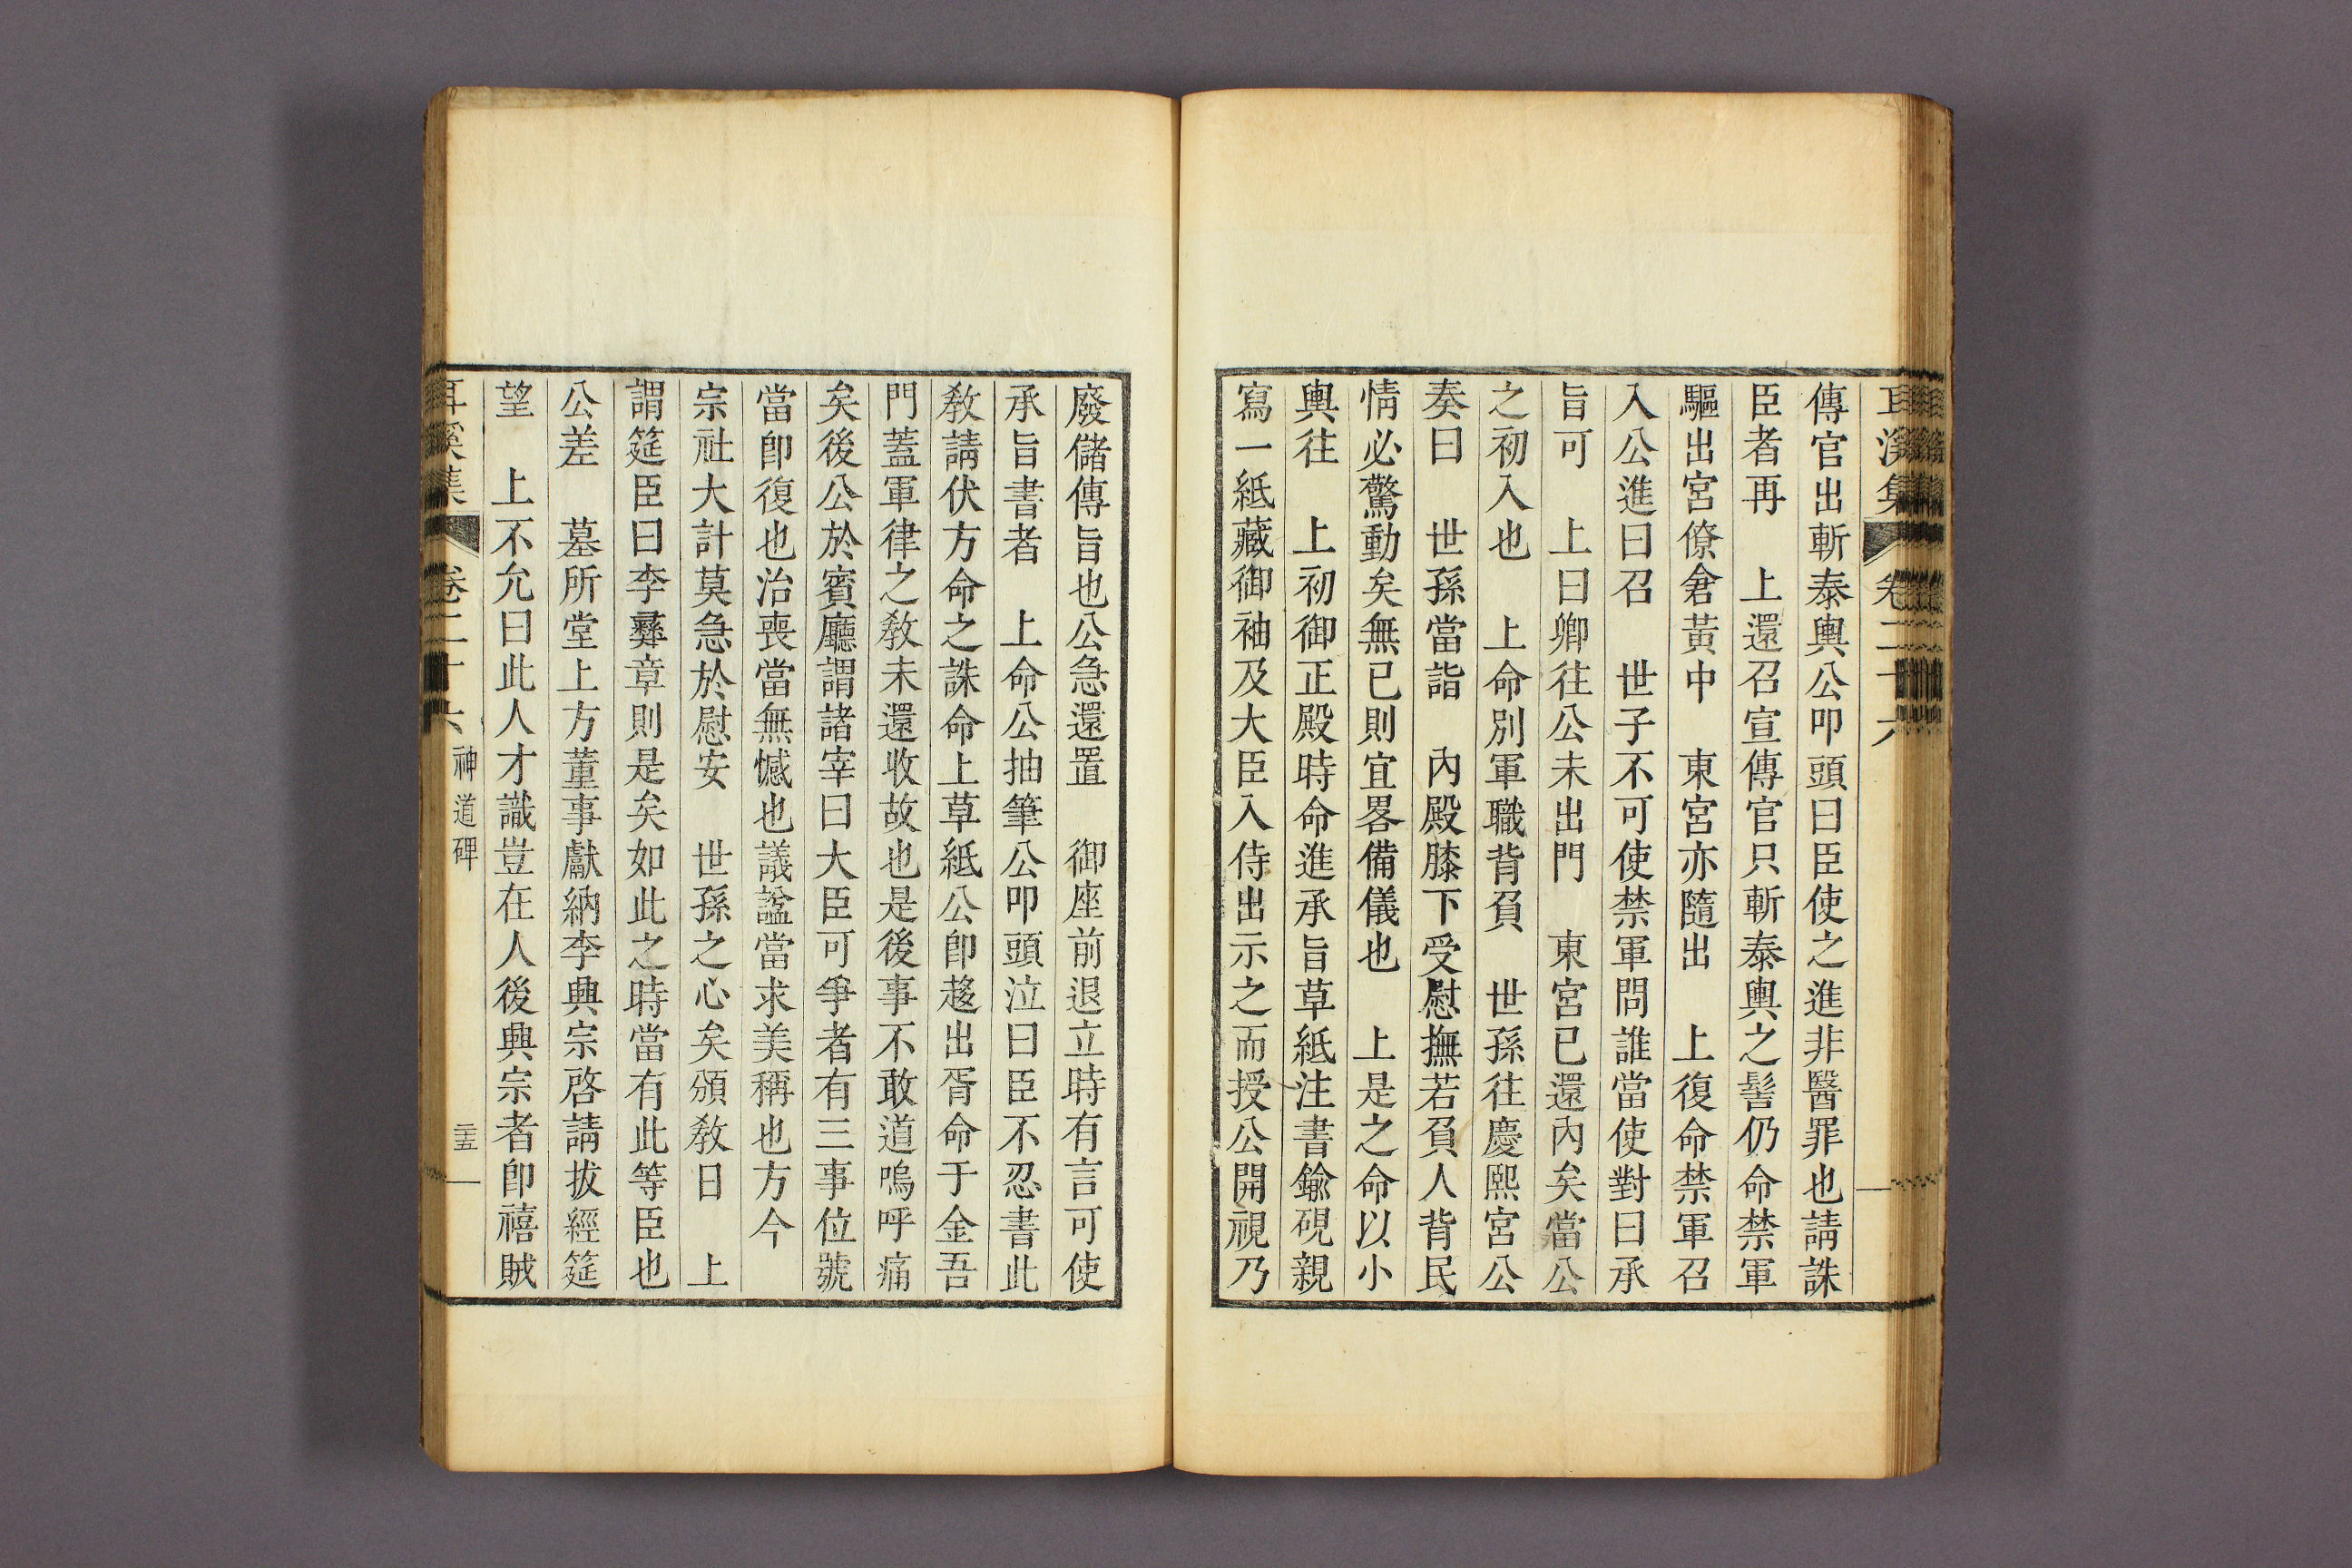 耳溪集 卷二十六
傳官出斬泰輿公叩頭曰臣使之進非醫罪也請誅
臣者再 上還召宣傳官只斬泰輿之髻仍命禁軍
驅出宮僚倉黃中 東宮亦隨出 上復命禁軍召
入公進曰召 世子不可使禁軍問誰當使對曰承
旨可 上曰卿往公未出門 東宮已還內矣當公
之初入也 上命別軍職背負 世孫往慶熙宮公
奏曰 世孫當詣 內殿膝下受慰撫若負人背民
情必驚動矣無已則宜畧備儀也 上是之命以小
輿往 上初御正殿時命進承旨草紙注書鍮硯親
寫一紙藏御袖及大臣入侍出示之而授公開視乃
廢儲傳旨也公急還置 御座前退立時有言可使
承旨書者 上命公抽筆公叩頭泣曰臣不忍書此
敎請伏方命之誅命上草紙公卽趍出胥命于金吾
門蓋軍律之敎未還收故也是後事不敢道嗚呼痛
矣後公於賓廳謂諸宰曰大臣可爭者有三事位號
當卽復也治喪當無憾也議諡當求美稱也方今
宗社大計莫急於慰安 世孫之心矣頒敎日 上
謂筵臣曰李彛章則是矣如此之時當有此等臣也
公差 墓所堂上方董事獻納李興宗啓請拔經筵
望 上不允曰此人才識豈在人後興宗者卽禧賊
耳溪集 卷二十六 神道碑 二十五